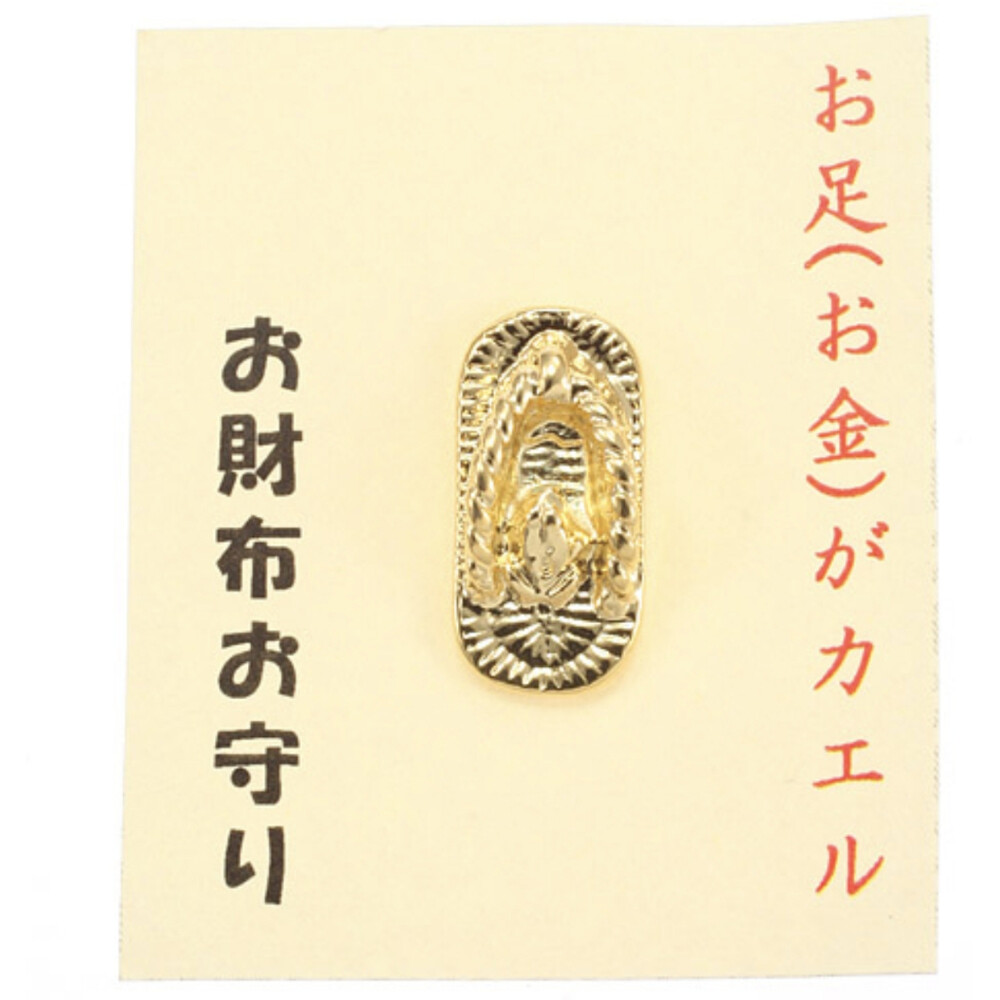 お足(お金)がカエル
お財布お守り